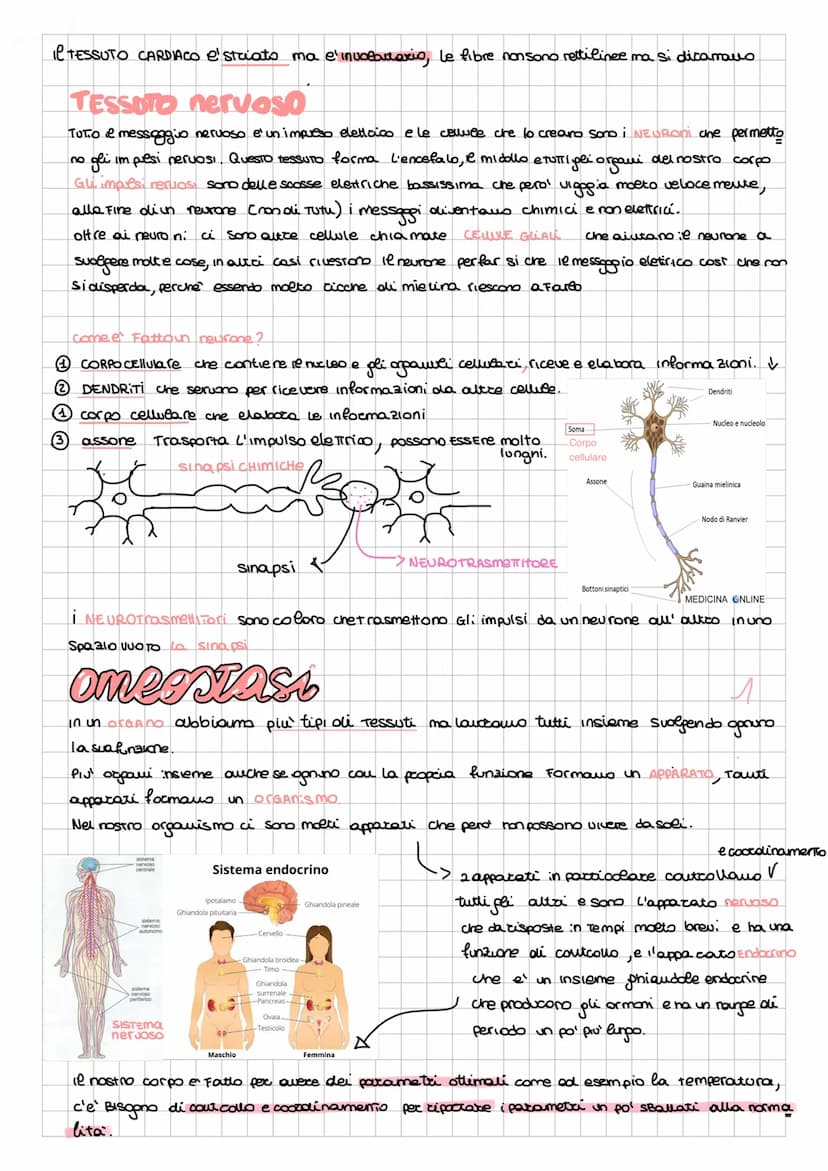 Il TESSUTO CARDIACO e' striato ma e' involontario, le fibre non sono rettilinee ma si diramano
TESSUTO nervoso
TUTTO il messaggio nervoso e' un impulso elettrico e le cellule che lo creano sono i NEURONI che permetto
no gli impulsi nervosi. Questo tessuto forma l'encefalo, il midollo e tutti gli organi del nostro corpo
Gli impulsi nervosi sono delle scosse elettriche bassissima che pero' viaggia molto velocemente,
alla fine di un neurone (non di tutti) i messaggi diventano chimici e non elettrici.
oltre ai neuroni ci sono altre cellule chiamate CELLULE GLIALI che aiutano il neurone a
svolgere molte cose, in altri casi rivestono il neurone per far si che il messaggio elettrico cosi che non
si disperda, perche' essendo molto ricche di mielina riescono a farlo
come e' fatto un neurone?
① CORPO CELLULARE che contiene il nucleo e gli organuli cellulari, riceve e elabora informazioni. ↓
② DENDRITI che servono per ricevere informazioni da altre cellule.
① corpo cellulare che elabora le informazioni
③ assone Trasporta l'impulso elettrico, possono ESSERE molto
lunghi.
Dendriti
Nucleo e nucleolo
Soma
Corpo
cellulare
Assone
Guaina mielinica
Nodo di Ranvier
Bottoni sinaptici
MEDICINA ONLINE
sinapsi CHIMICHE
sinapsi
NEUROTRASMETTITORE
i NEUROTrasmettitori sono coloro che trasmettono Gli impulsi da un neurone all' altro in uno
spazio vuoto la sinapsi
omeostasi
1
in un organo abbiamo piu' tipi di tessuti ma lavorano tutti insieme svolgendo ognuno
la sua funzione.
Piu' organi insieme anche se ognuno con la propria funzione formano un APPARATO, Tanti
apparati formano un organismo.
Nel nostro organismo ci sono molti apparati che pero' non possono vivere da soli.
e coordinamento
2 apparati in particolare controllano
tutti gli altri e sono l'apparato nervoso
che da risposte in tempi molto brevi e ha una
funzione di controllo, e l'apparato endocrino
che e' un insieme ghiandole endocrine
che producono gli ormoni e ha un range di
periodo un po' piu' lungo.
sistema
nervoso
centrale
sistema
nervoso
autonomo
sistema
nervoso
periferico
SISTEMA
nervoso
Sistema endocrino
Ipotalamo
Ghiandola pineale
Ghiandola pituitaria
Cervello
Ghiandola tiroidea
Timo
Ghiandola
surrenale
Pancreas
Ovaia
Testicolo
Maschio
Femmina
Il nostro corpo e' fatto per avere dei parametri ottimali come ad esempio la temperatura,
c'e' bisogno di controllo e coordinamento per riportare i parametri un po' sballati alla norma
lita'.